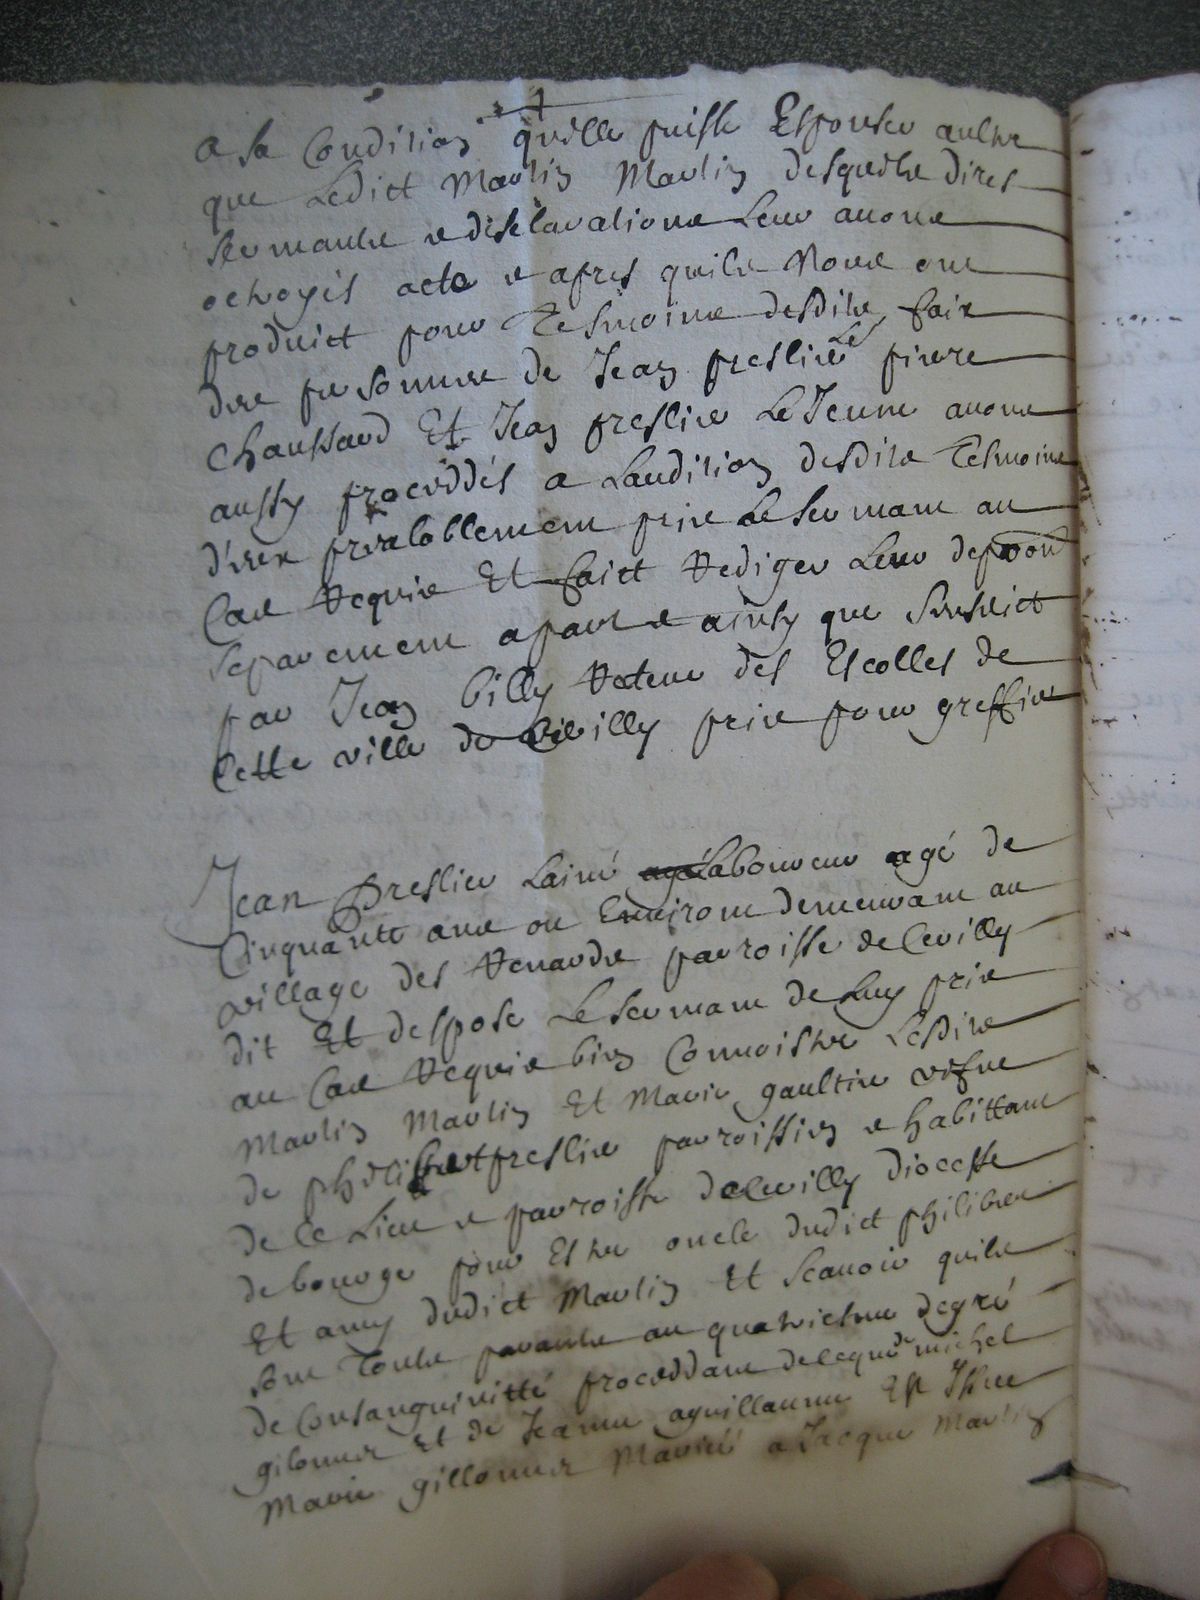 a sa Condition quille puisse Espouser aultre
que Ledict Martin Martin desquels dires
sermants et desclarations Leur avons
octroyés acte et apres quils Nous ont
produict pour Tesmoins desdits faits
dire personnes de Jean preslier Le pierre
Chaussard Et Jean preslier Le Jeune avons
aussy proceddés a Laudition desdits Tesmoins
diceux prealablement pris Le serment au
Cas Requis Et faict Rediger Leur depoon
separement apart et ainsy que sensuict
par Jean billy Recteur des Escolles de
Cette ville de Cerilly pris pour greffier
Jean Preslier Lainé Laboureur agé de
Cinquante ans ou Environt demeurant au
village des Renards parroisse de Cerilly
dit Et despose Le serment de Luy pris
au Cas Requis bien Connoistre Lesdits
Martin Martin Et Marie gaultier vefve
de philibert preslier parroissiens et habittant
de Ce Lieu et parroisse de Cerilly diocesse
de bourge pour Estre oncle dudict philibert
Et amy dudict Martin Et scavoir quils
sont Touts parants au quatriesme degré
de Consanguinitté proceddant de ceque de michel
gilonnet Et de Jeanne aguillaume Est Issue
Marie gillonnet Mariée a Jacque Martin